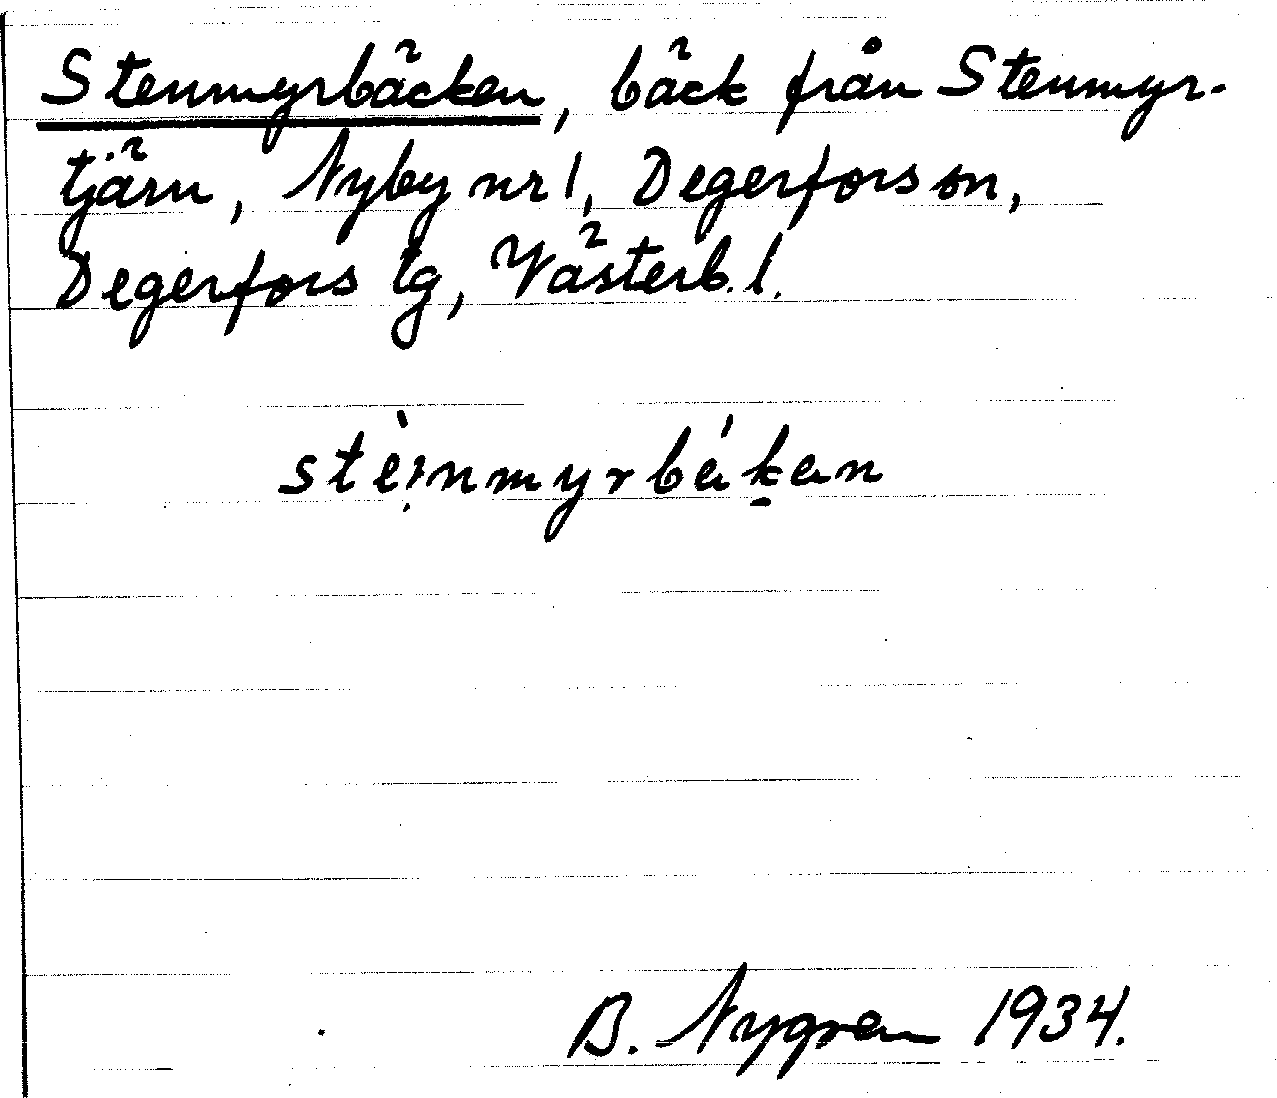 Stenmyrbäcken, bäck från Stenmyr-
tjärn, Nyby nr 1, Degerfors sn,
Degerfors tg, Västerb. l.
stèi̩nmyrbák̠an
B. Nygren 1934.